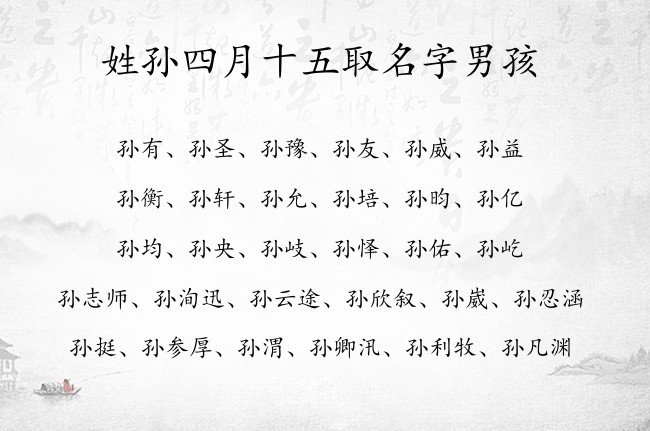 姓孙四月十五取名字男孩
孙有、孙圣、孙豫、孙友、孙威、孙益
孙衡、孙轩、孙允、孙培、孙昀、孙亿
孙均、孙央、孙岐、孙怿、孙佑、孙屹
孙志师、孙洵迅、孙云途、孙欣叙、孙崴、孙忍涵
孙挺、孙参厚、孙渭、孙卿汛、孙利牧、孙凡渊